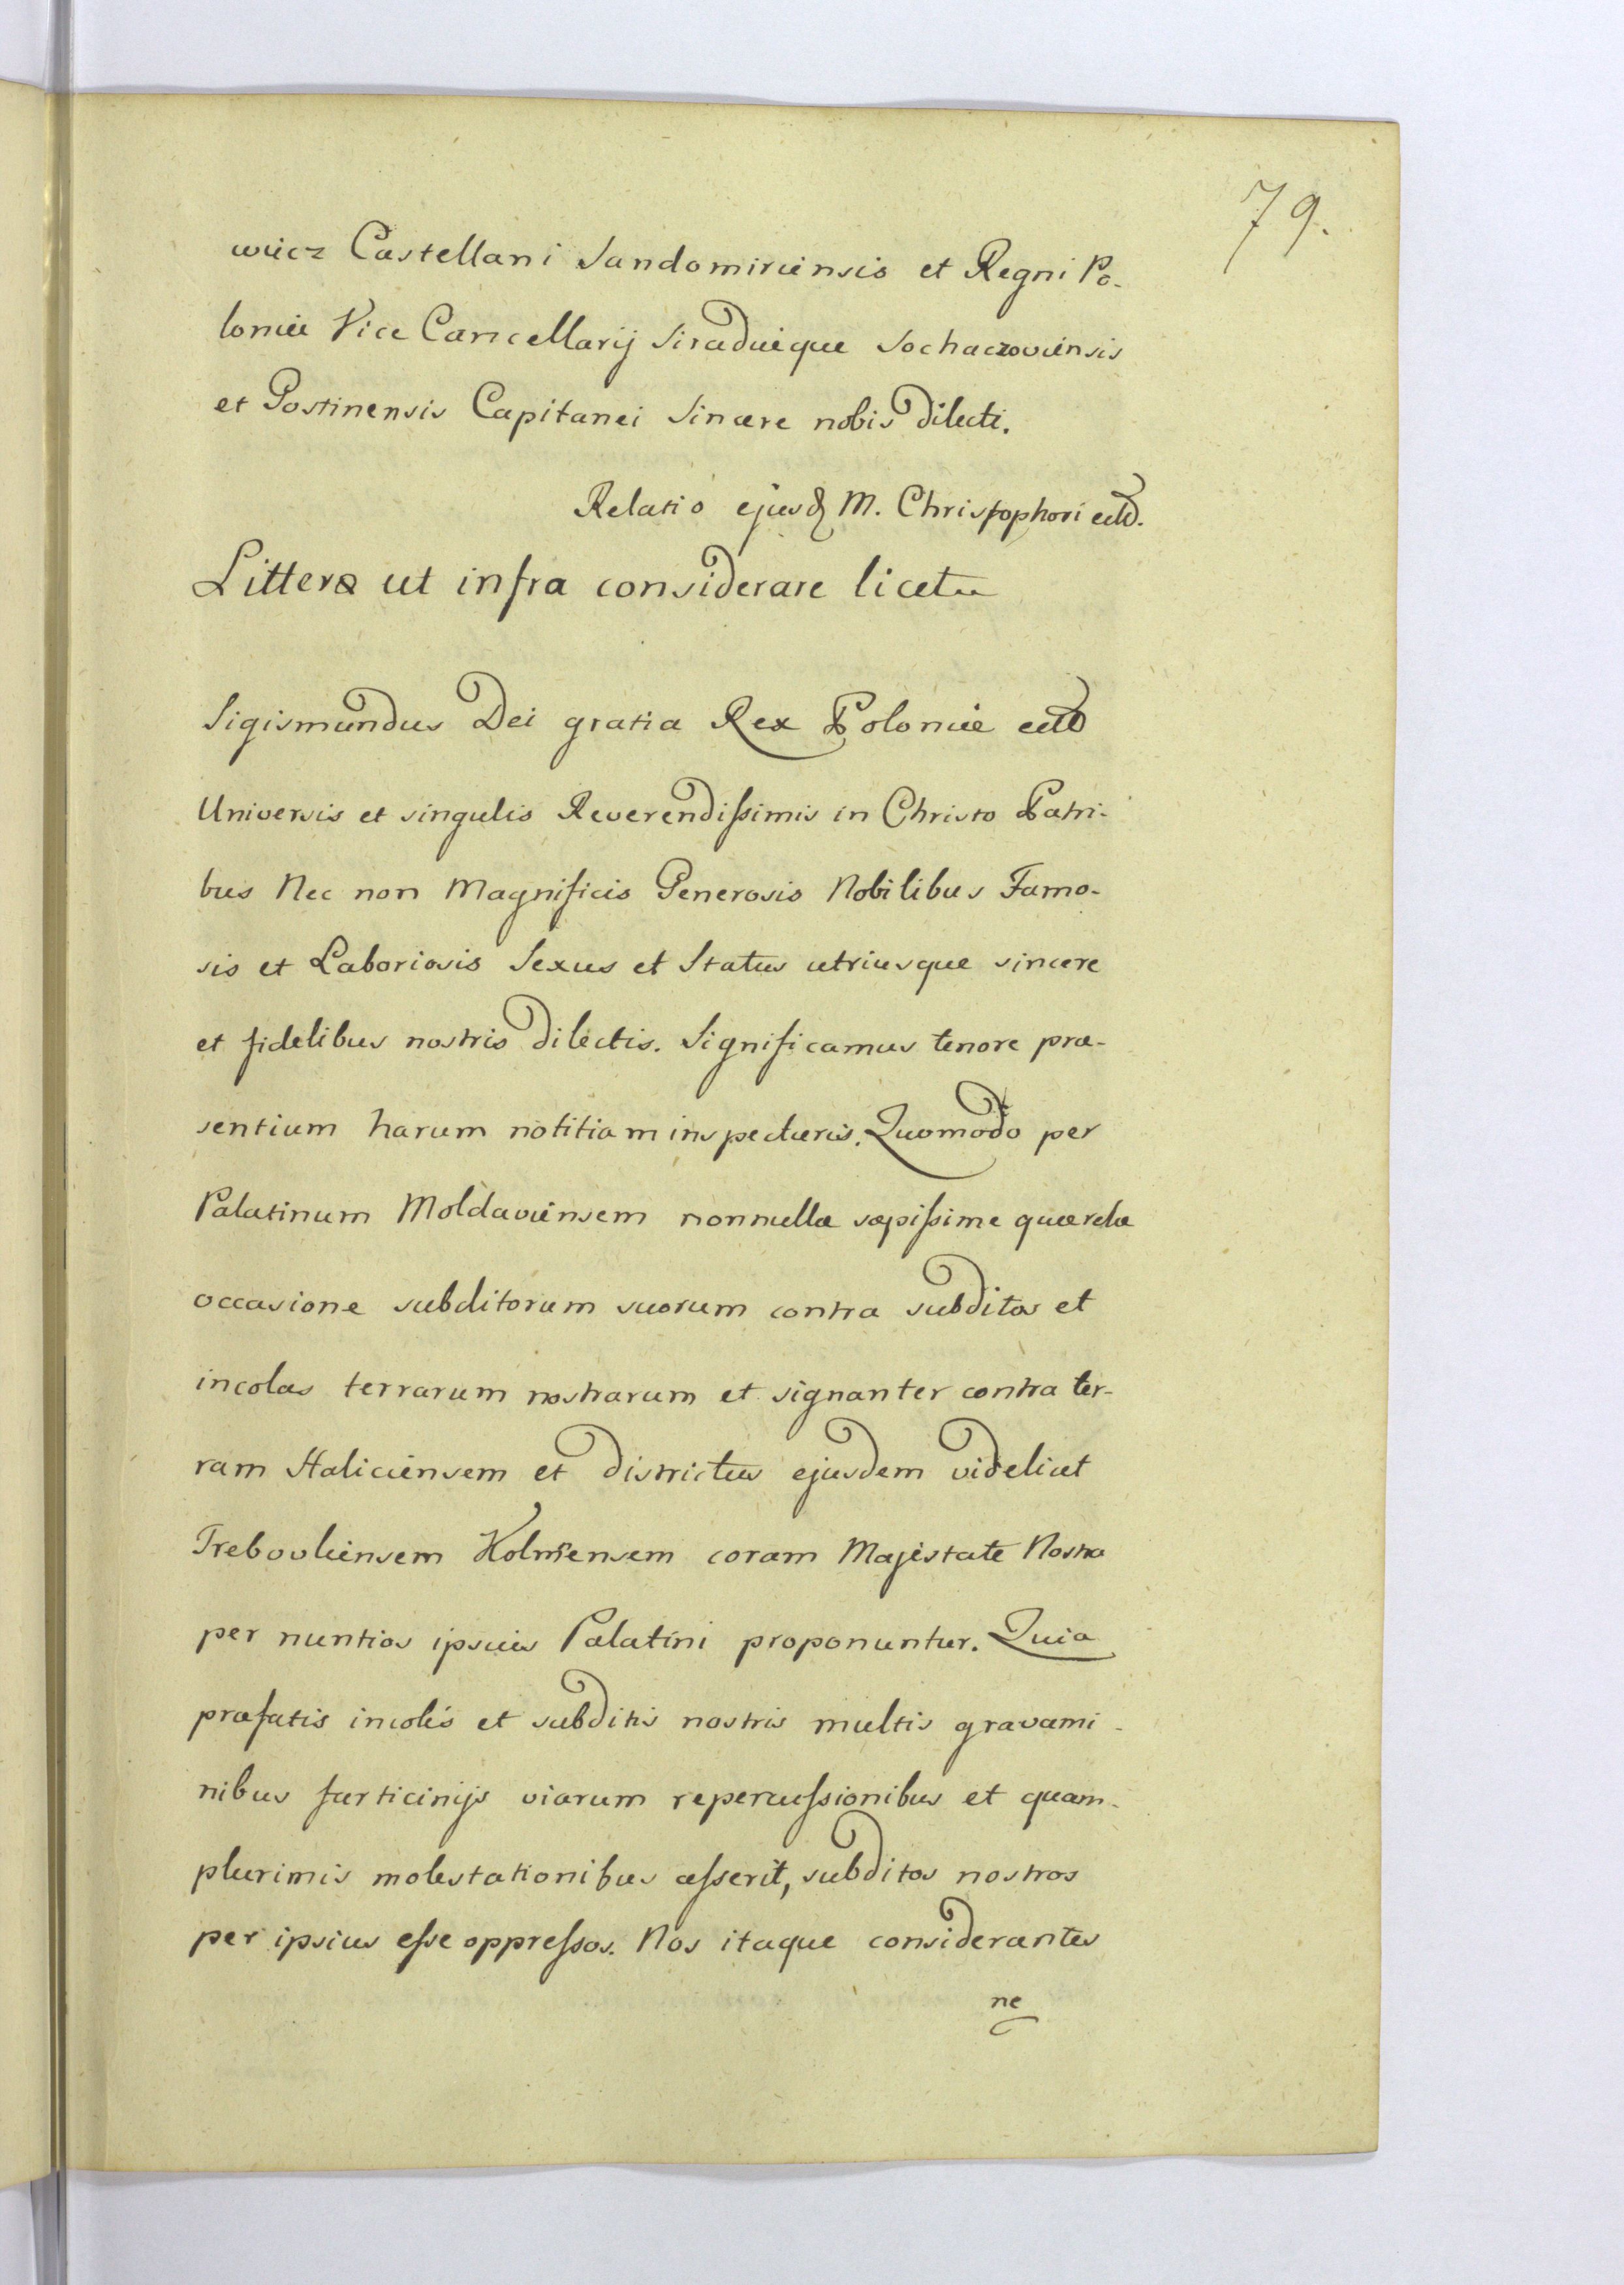 79.
wiecz Castellani Sandomiriensis et Regni Po-
loniæ Vice Cancellarij Siradiæque Sochaczoviensis
et Gostinensis Capitanei Sincere nobis dilecti.
Relatio ejusd M. Christophori etc.
Litteræ ut infra considerare licet
Sigismundus Dei gratia Rex Poloniæ etc
Universis et singulis Reverendissimis in Christo Patri-
bus Nec non Magnificis Generosis Nobilibus Famo-
sis et Laboriosis Sexus et Status utriusque sincere
et fidelibus nostris dilectis. Significamus tenore præ-
sentium harum notitiam inspecturis. Quomodo per
Palatinum Moldaviensem nonnullæ sæpissime quærelæ
occasione subditorum suorum contra subditos et
incolas terrarum nostrarum et signanter contra ter-
ram Haliciensem et districtus ejusdem videlicet
Trebovliensem Kolmiensem coram Majestate Nostra
per nuntios ipsius Palatini proponuntur. Quia
præfatis incolis et subditis nostris multis gravami-
nibus furticinijs viarum repercussionibus et quam-
plurimis molestationibus asserit, subditos nostros
per ipsius esse oppressos. Nos itaque considerantes
ne